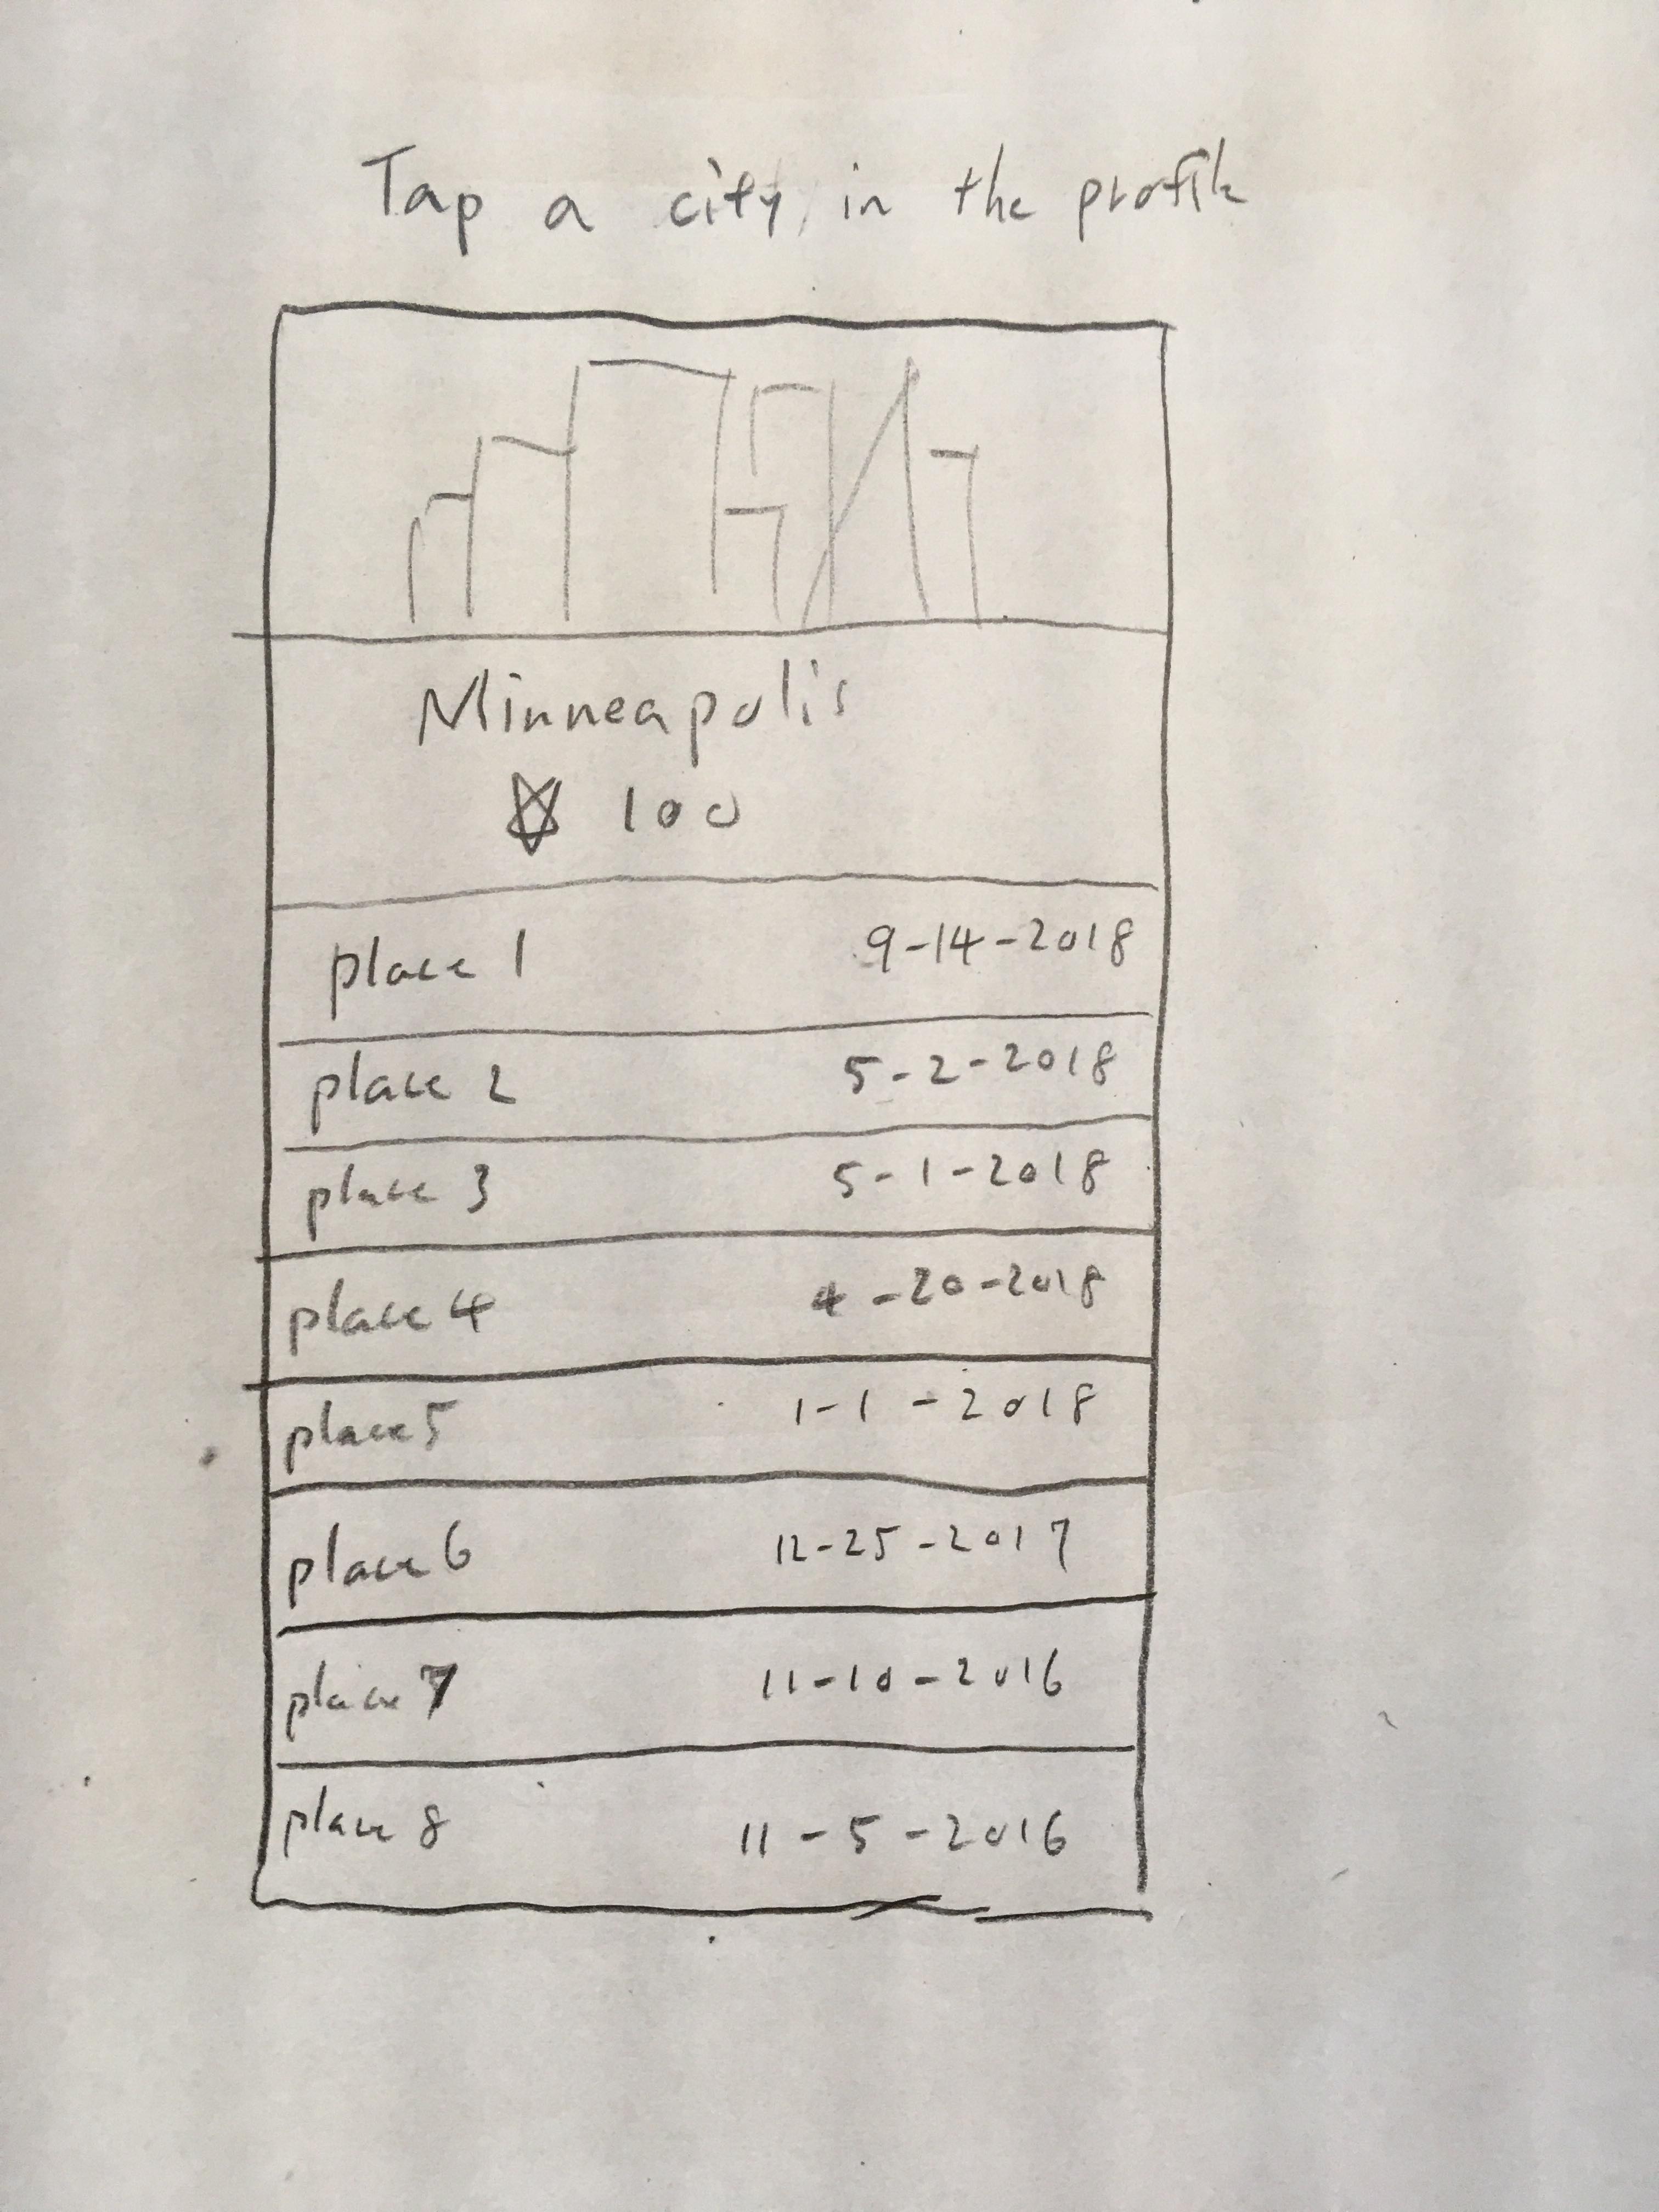 Tap a city in the profile
Minneapolis
100
place 1 9-14-2018
place 2 5-2-2018
place 3 5-1-2018
place 4 4-20-2018
place 5 1-1-2018
place 6 12-25-2017
place 7 11-10-2016
place 8 11-5-2016